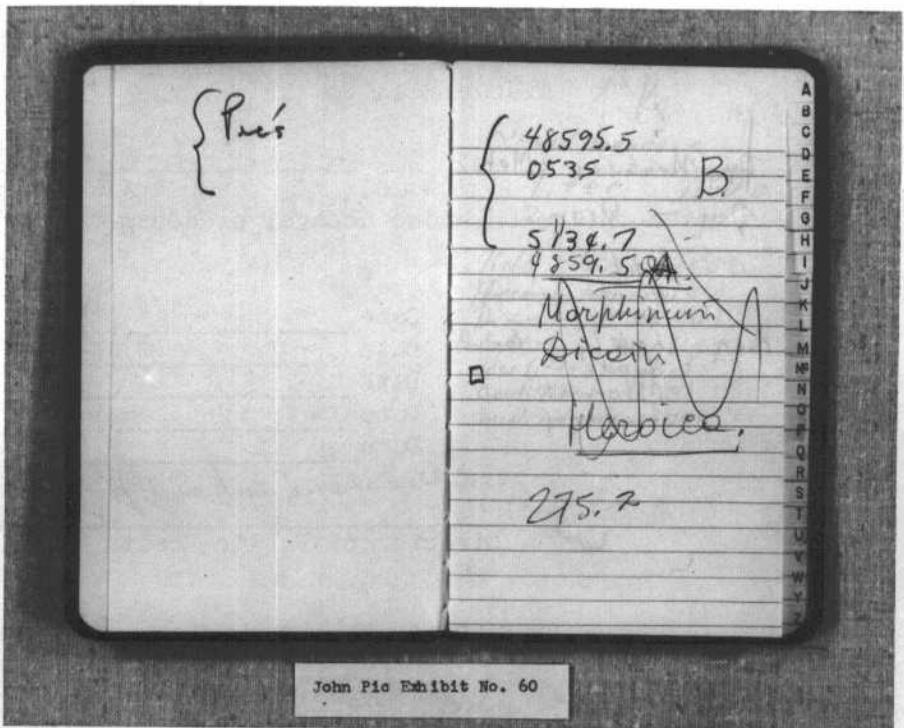 Prés
48595.5
0535
B.
5134.7
4859.5
Morphinum
Dicain
Heroica.
275.2
A
B
C
D
E
F
G
H
I
J
K
L
M
N
O
P
Q
R
S
T
U
V
W
Y
Z
John Pic Exhibit No. 60